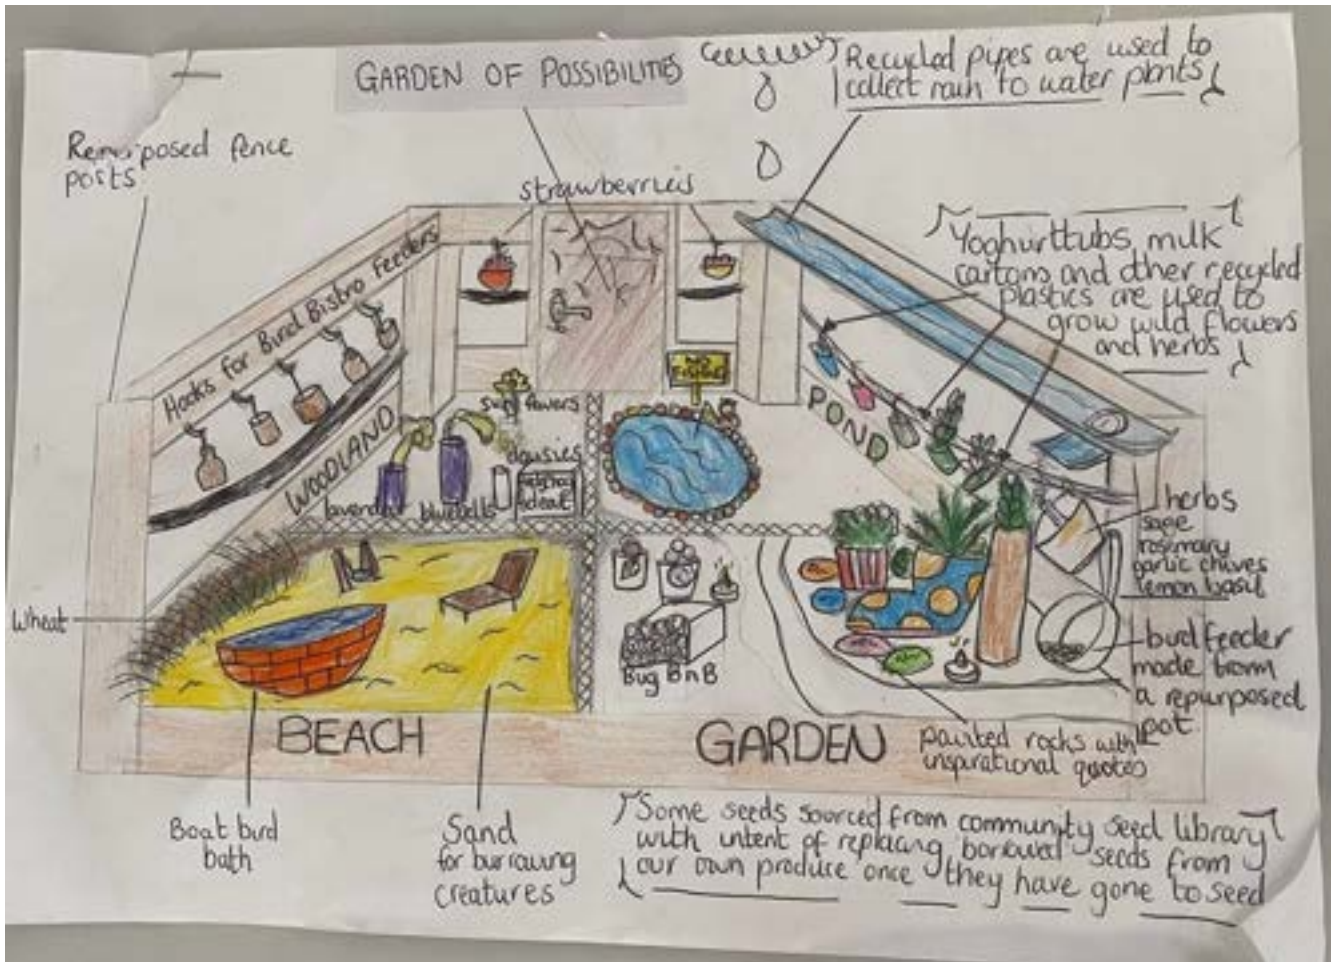 GARDEN OF POSSIBILITIES
Recycled pipes are used to
collect rain to water plants
Repurposed fence
posts
strawberries
Yoghurt tubs, milk
cartons and other recycled
plastics are used to
grow wild flowers
and herbs
Hooks for Bird Bistro Feeders
NO
FISHING
WOODLAND
sunflowers
daisies
lavender
bluebells
POND
herbs
sage
rosemary
garlic chives
lemon basil
Wheat
Bug BnB
bird feeder
made from
a repurposed
pot
BEACH
GARDEN
painted rocks with
inspirational quotes
Boat bird
bath
Sand
for burrowing
creatures
Some seeds sourced from community seed library
with intent of replacing borrowed seeds from
our own produce once they have gone to seed